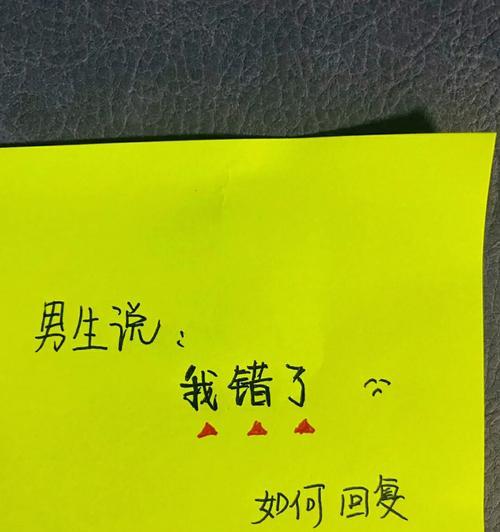 男生说：
我错了
如何回复